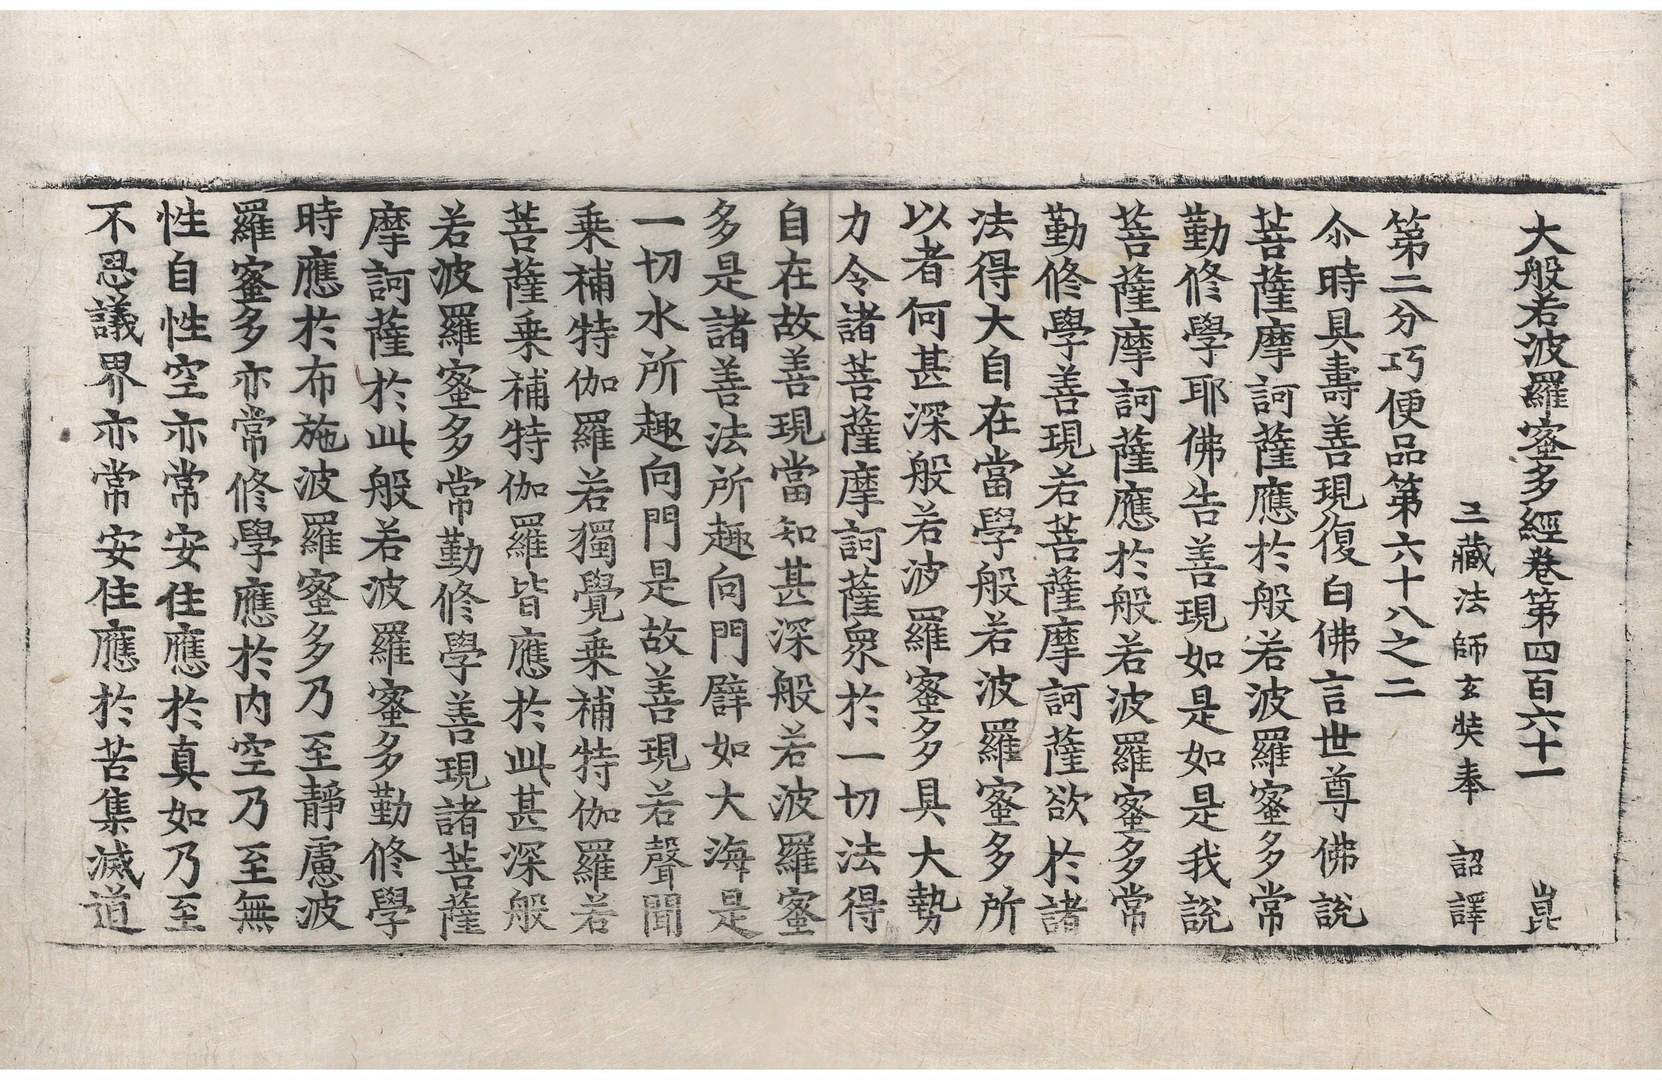 大般若波羅蜜多經卷第四百六十一 崑
三藏法師玄奘奉 詔譯
第二分巧便品第六十八之二
尒時具壽善現復白佛言世尊佛說
菩薩摩訶薩應於般若波羅蜜多常
勤修學耶佛告善現如是如是我說
菩薩摩訶薩應於般若波羅蜜多常
勤修學善現若菩薩摩訶薩欲於諸
法得大自在當學般若波羅蜜多所
以者何甚深般若波羅蜜多具大勢
力令諸菩薩摩訶薩衆於一切法得
自在故善現當知甚深般若波羅蜜
多是諸善法所趣向門譬如大海是
一切水所趣向門是故善現若聲聞
乗補特伽羅若獨覺乗補特伽羅若
菩薩乗補特伽羅皆應於此甚深般
若波羅蜜多常勤修學善現諸菩薩
摩訶薩於此般若波羅蜜多勤修學
時應於布施波羅蜜多乃至靜慮波
羅蜜多亦常修學應於内空乃至無
性自性空亦常安住應於真如乃至
不思議界亦常安住應於苦集滅道